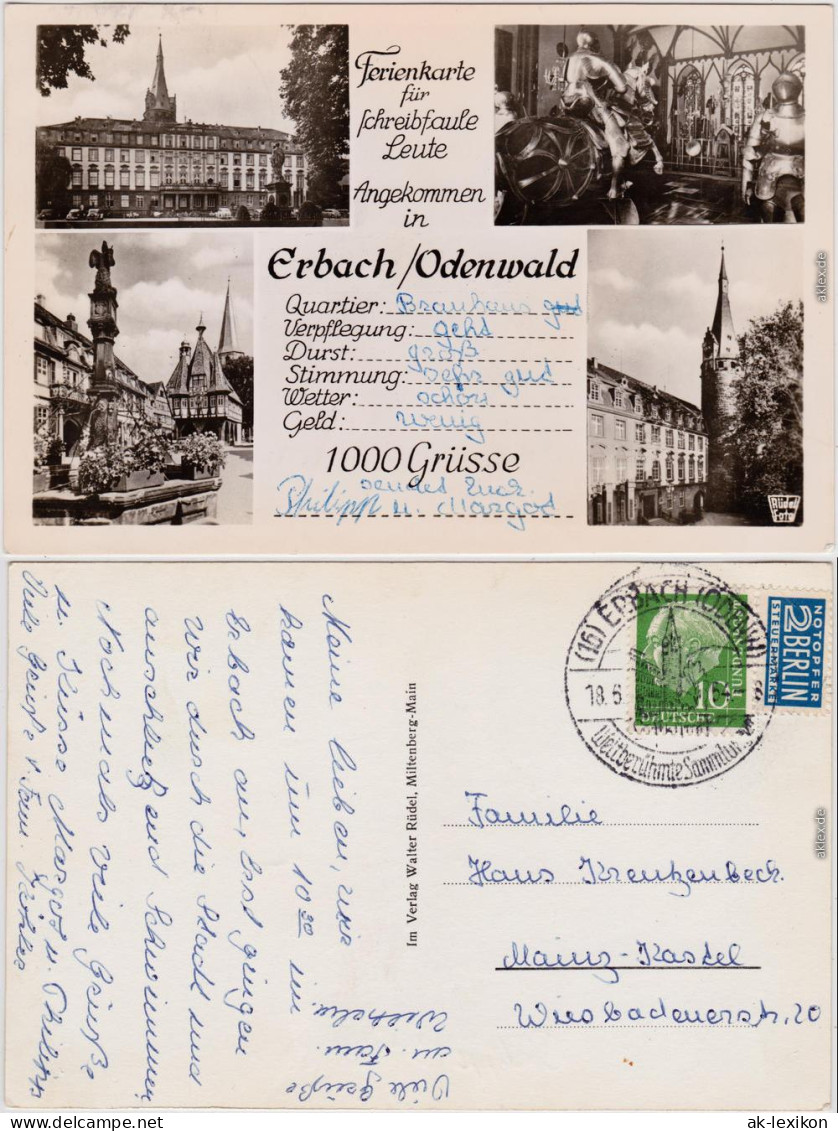 Ferienkarte
für
schreibfaule
Leute
Angekommen
in
Erbach/Odenwald
Quartier: Brauhaus gut
Verpflegung: geht
Durst: groß
Stimmung: sehr gut
Wetter: schön
Geld: wenig
1000 Grüsse
sendet Euch
Philipp u. Margot
Rüdel
Foto
Meine lieben, wir
kamen um 10 30 in
Erbach an, erst gingen
wir durch die Stadt und
anschließend Schwimmen
Nochmals viele Grüße
u. Küsse Margot u. Philipp
Viele Grüße v. Fam.
Viele Grüße
an Fam.
Wilhelm
Im Verlag Walter Rüdel, Miltenberg-Main
(16) ERBACH (ODENW)
18.6.
Weltberühmte Sammlun
10
DEUTSCHE
NOTOPFER
2 BERLIN
STEUERMARKE
Familie
Hans Kreuzenbeck
Mainz-Kastel
Wiesbadenerstr, 20
aklex.de
aklex.de
www.delcampe.net
ak-lexikon